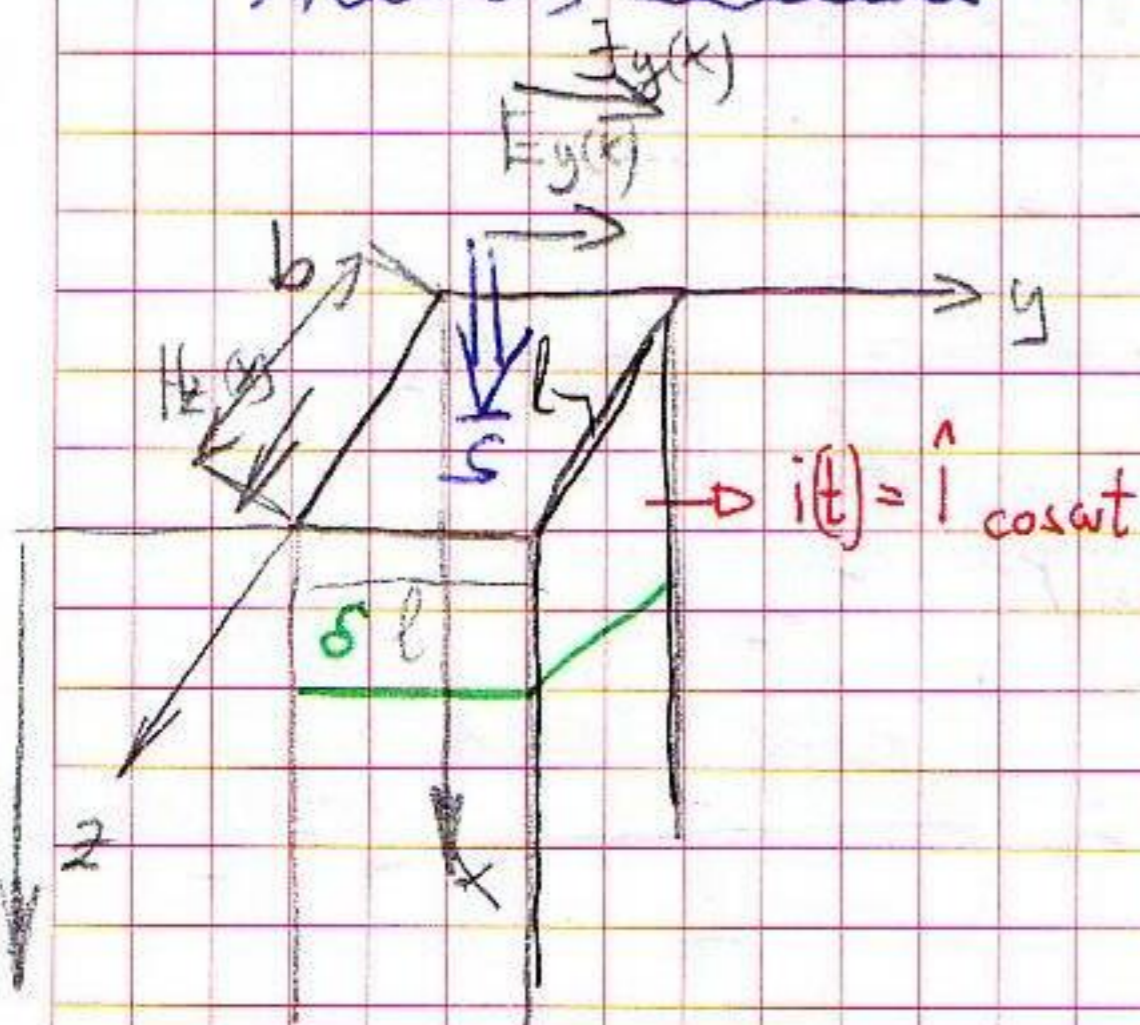 Jy(x)
Ey(x)
b
y
Hz(x)
S
l
i(t) = Î cosωt
δ
l
z
x